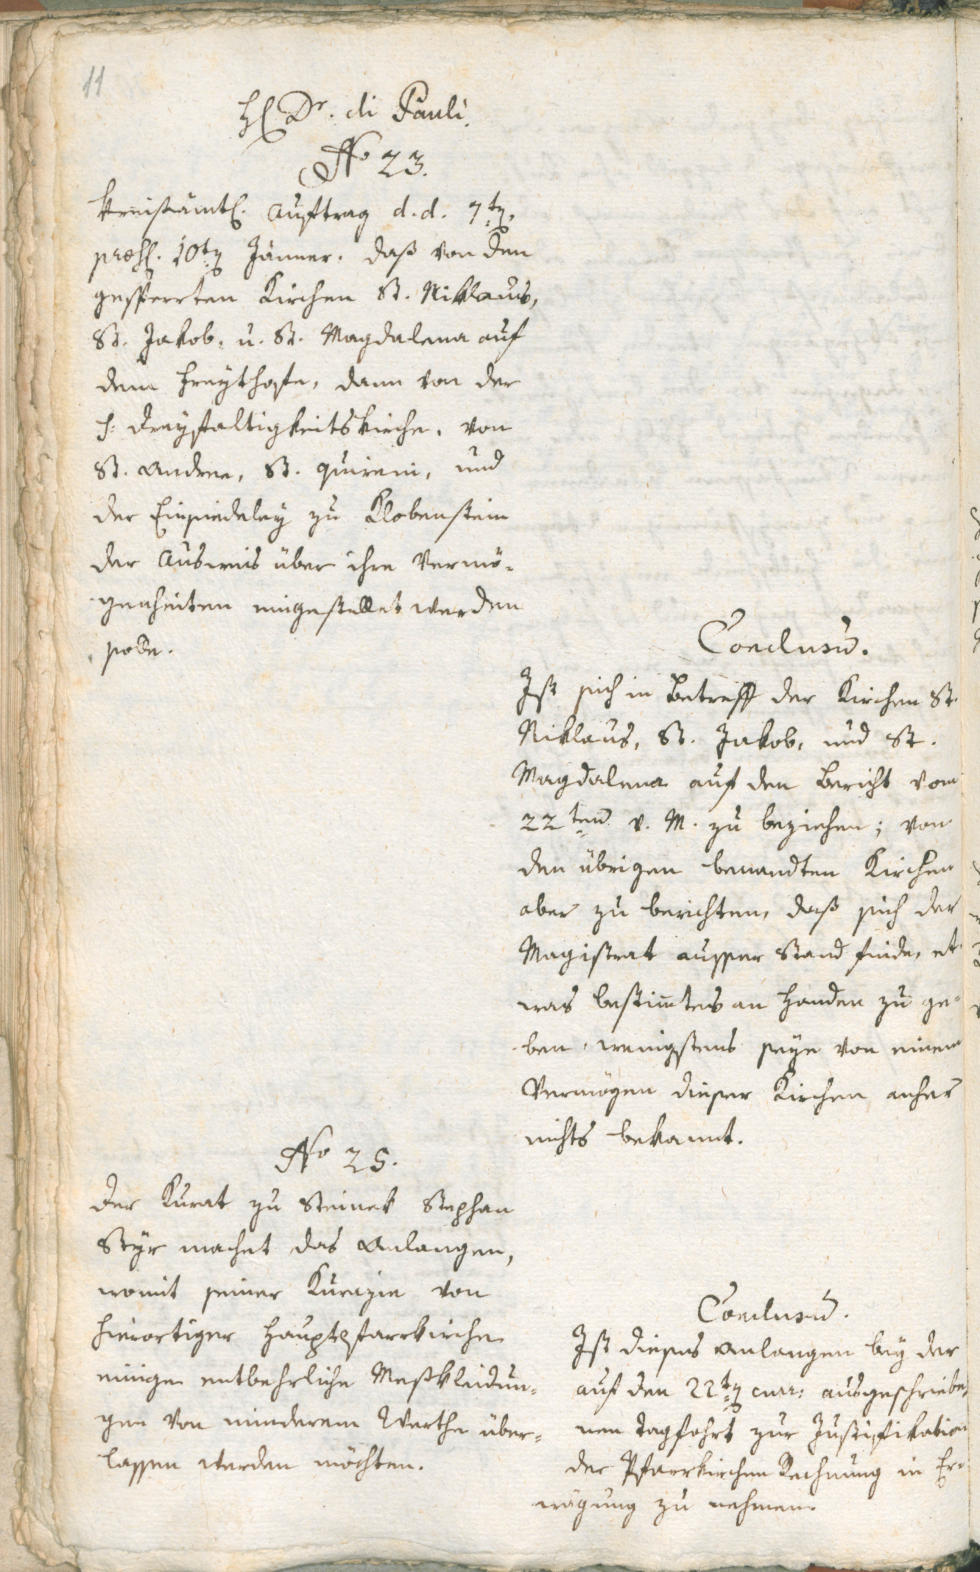 11
H. Dr. di Pauli.
No 23.
Kreisämtl. Auftrag d. d. 7ten,
præs. 10ten Jänner. daß von den
gesperrten Kirchen St. Niklaus,
St. Jakob, u. St. Magdalena auf
dem Freythofe, dann von der
h: Dreyfaltigkeitskirche, von
St. Andree, St. Quireni, und
der Einsiedeley zu Klobenstein
der Ausweis über ihre Vermö-
genheiten eingestellet werden
solle.
Conclusū.
Ist sich in Betreff der Kirchen St.
Niklaus, St. Jakob, und St.
Magdalena auf den Bericht vom
22ten v. M. zu beziehen; von
den übrigen benandten Kirchen
aber zu berichten, daß sich der
Magistrat ausser Stand finde, et
was bestim̄tes an Handen zu ge-
ben, wenigstens seye von einem
Vermögen dieser Kirchen anher
nichts bekannt.
No 25.
Der Kurat zu Steinek Stephan
Styr machet das Anlangen,
womit seiner Kurazie von
hierortiger Hauptpfarrkirche
einige entbehrliche Meßkleidun-
gen von minderem Werthe über-
lassen werden möchten.
Conclusū.
Ist dieses Anlangen bey der
auf den 22ten curr: ausgeschriebe-
nen Tagfahrt zur Justifikation
der Pfarrkirchen Rechnung in Er-
wägung zu nehmen.